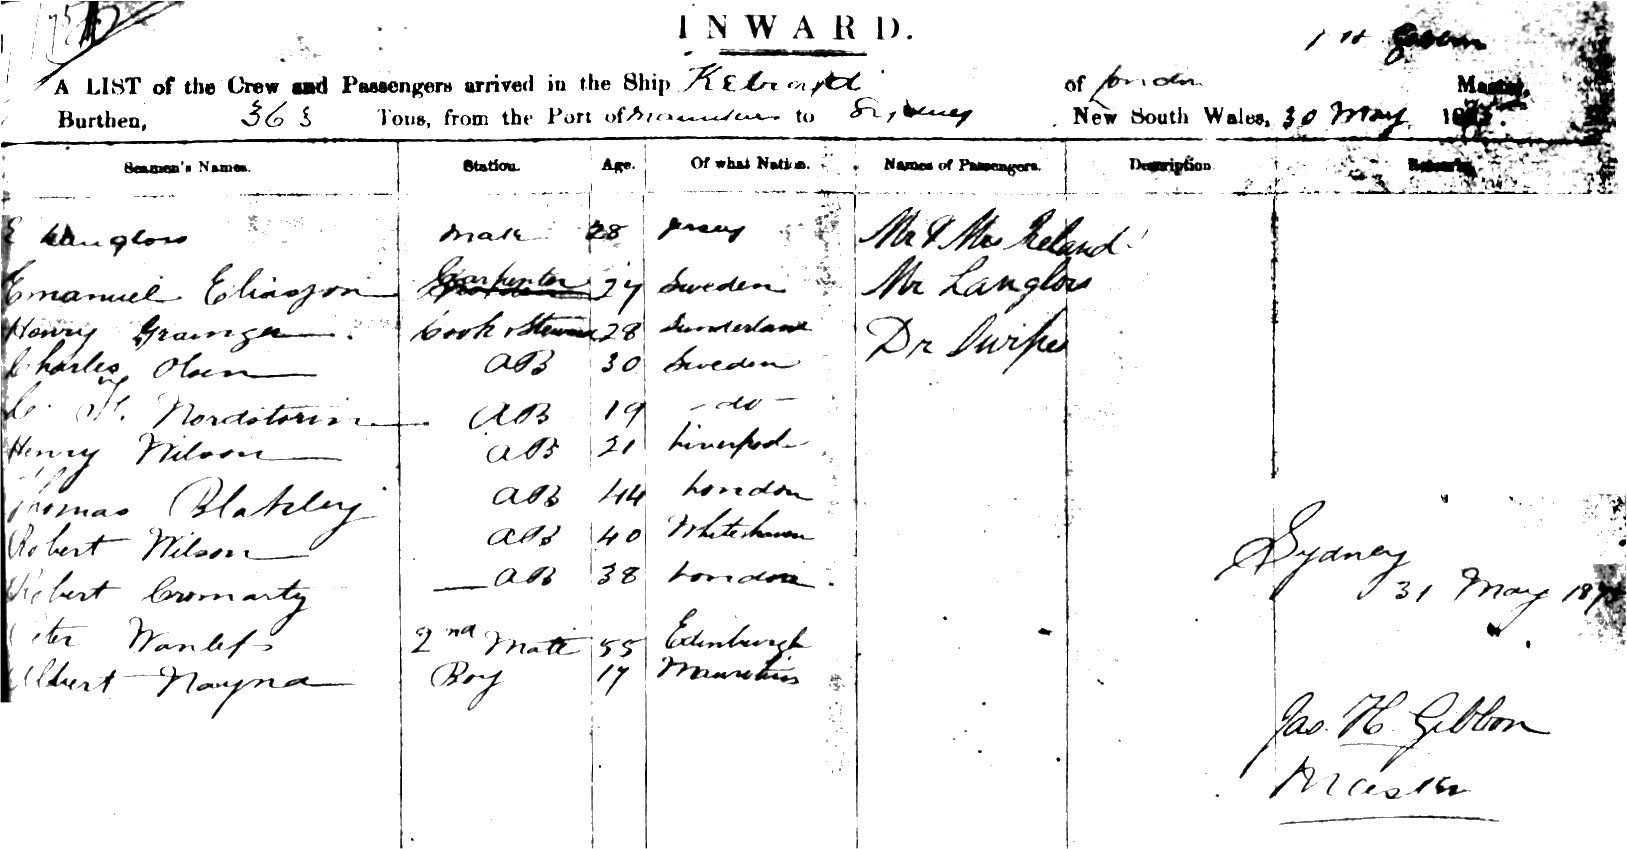 INWARD.
A LIST of the Crew and Passengers arrived in the Ship of London Master,
Burthen, 363 Tons, from the Port of Mauritius to Sydney New South Wales, 30 May
Seamen's Names. Station. Age. Of what Nation. Names of Passengers. Description Remarks
E Langlois Mate 28 Jersey Mr & Mrs Ireland
Emanuel Eliasson Carpenter 27 Sweden Mr Langlois
Henry Grainger Cook & Steward 28 Sunderland Dr
Charles Olsen AB 30 Sweden
Nordstorm AB 19 - do -
Henry Wilson AB 21 Liverpool
Thomas Blakley AB 44 London
Robert Wilson AB 40 Whitehaven
Robert Cromarty AB 38 London
Peter Wanless 2nd Mate 55 Edinburgh
Albert Nayna Boy 17 Mauritius
Sydney
31 May
Jas. H. Gibbon
Master